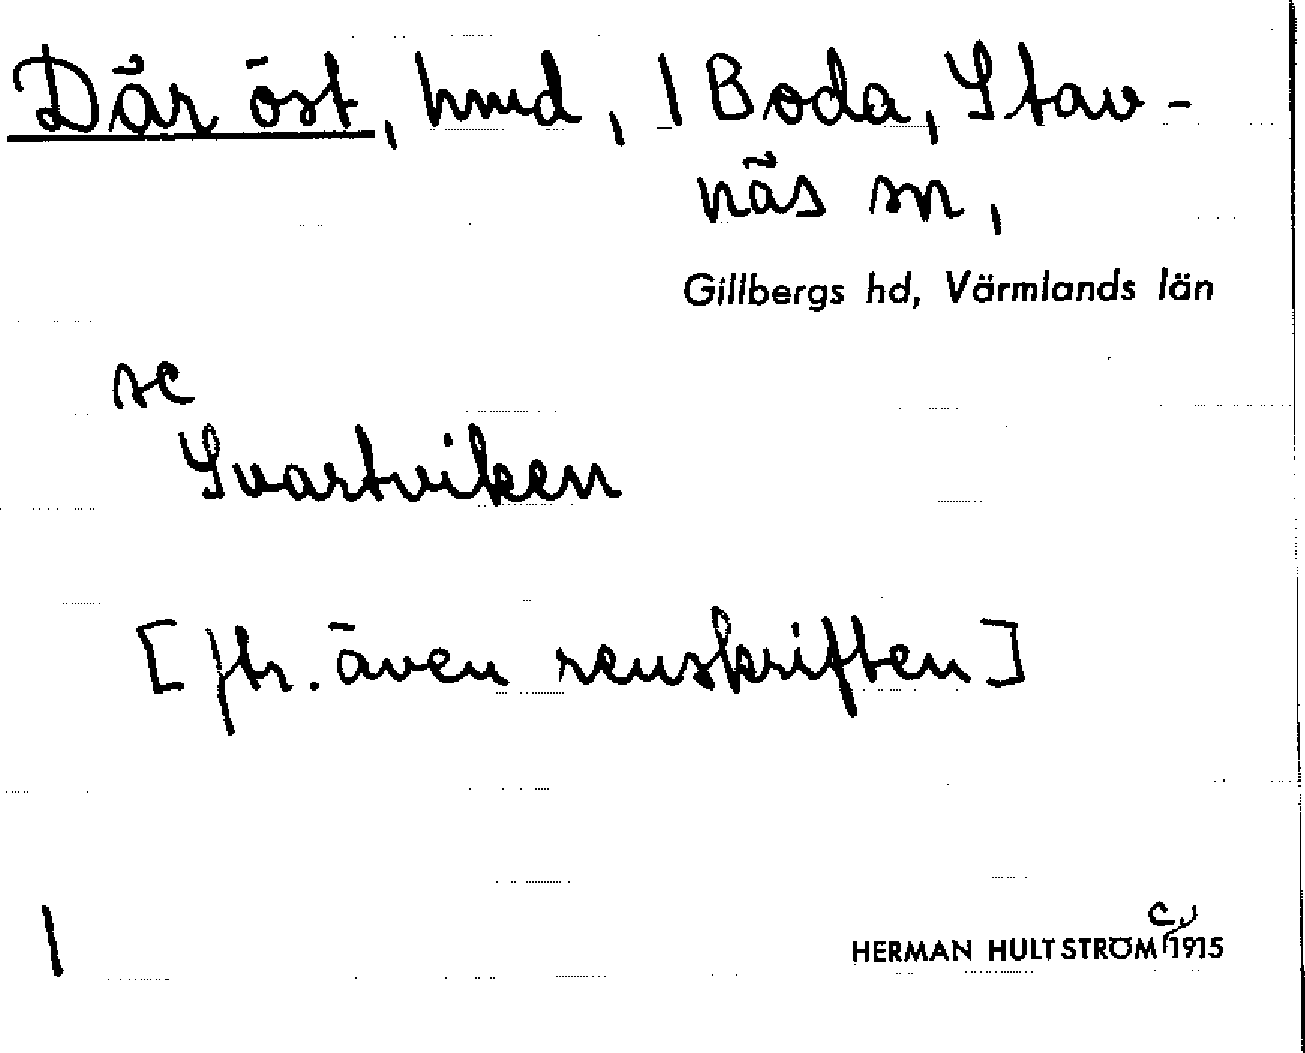 Där öst, hmd, 1 Boda, Stav-
näs sn,
Gillbergs hd, Värmlands län
se
Svartviken
[jfr. även renskriften]
1
HERMAN HULTSTRÖM c 1915